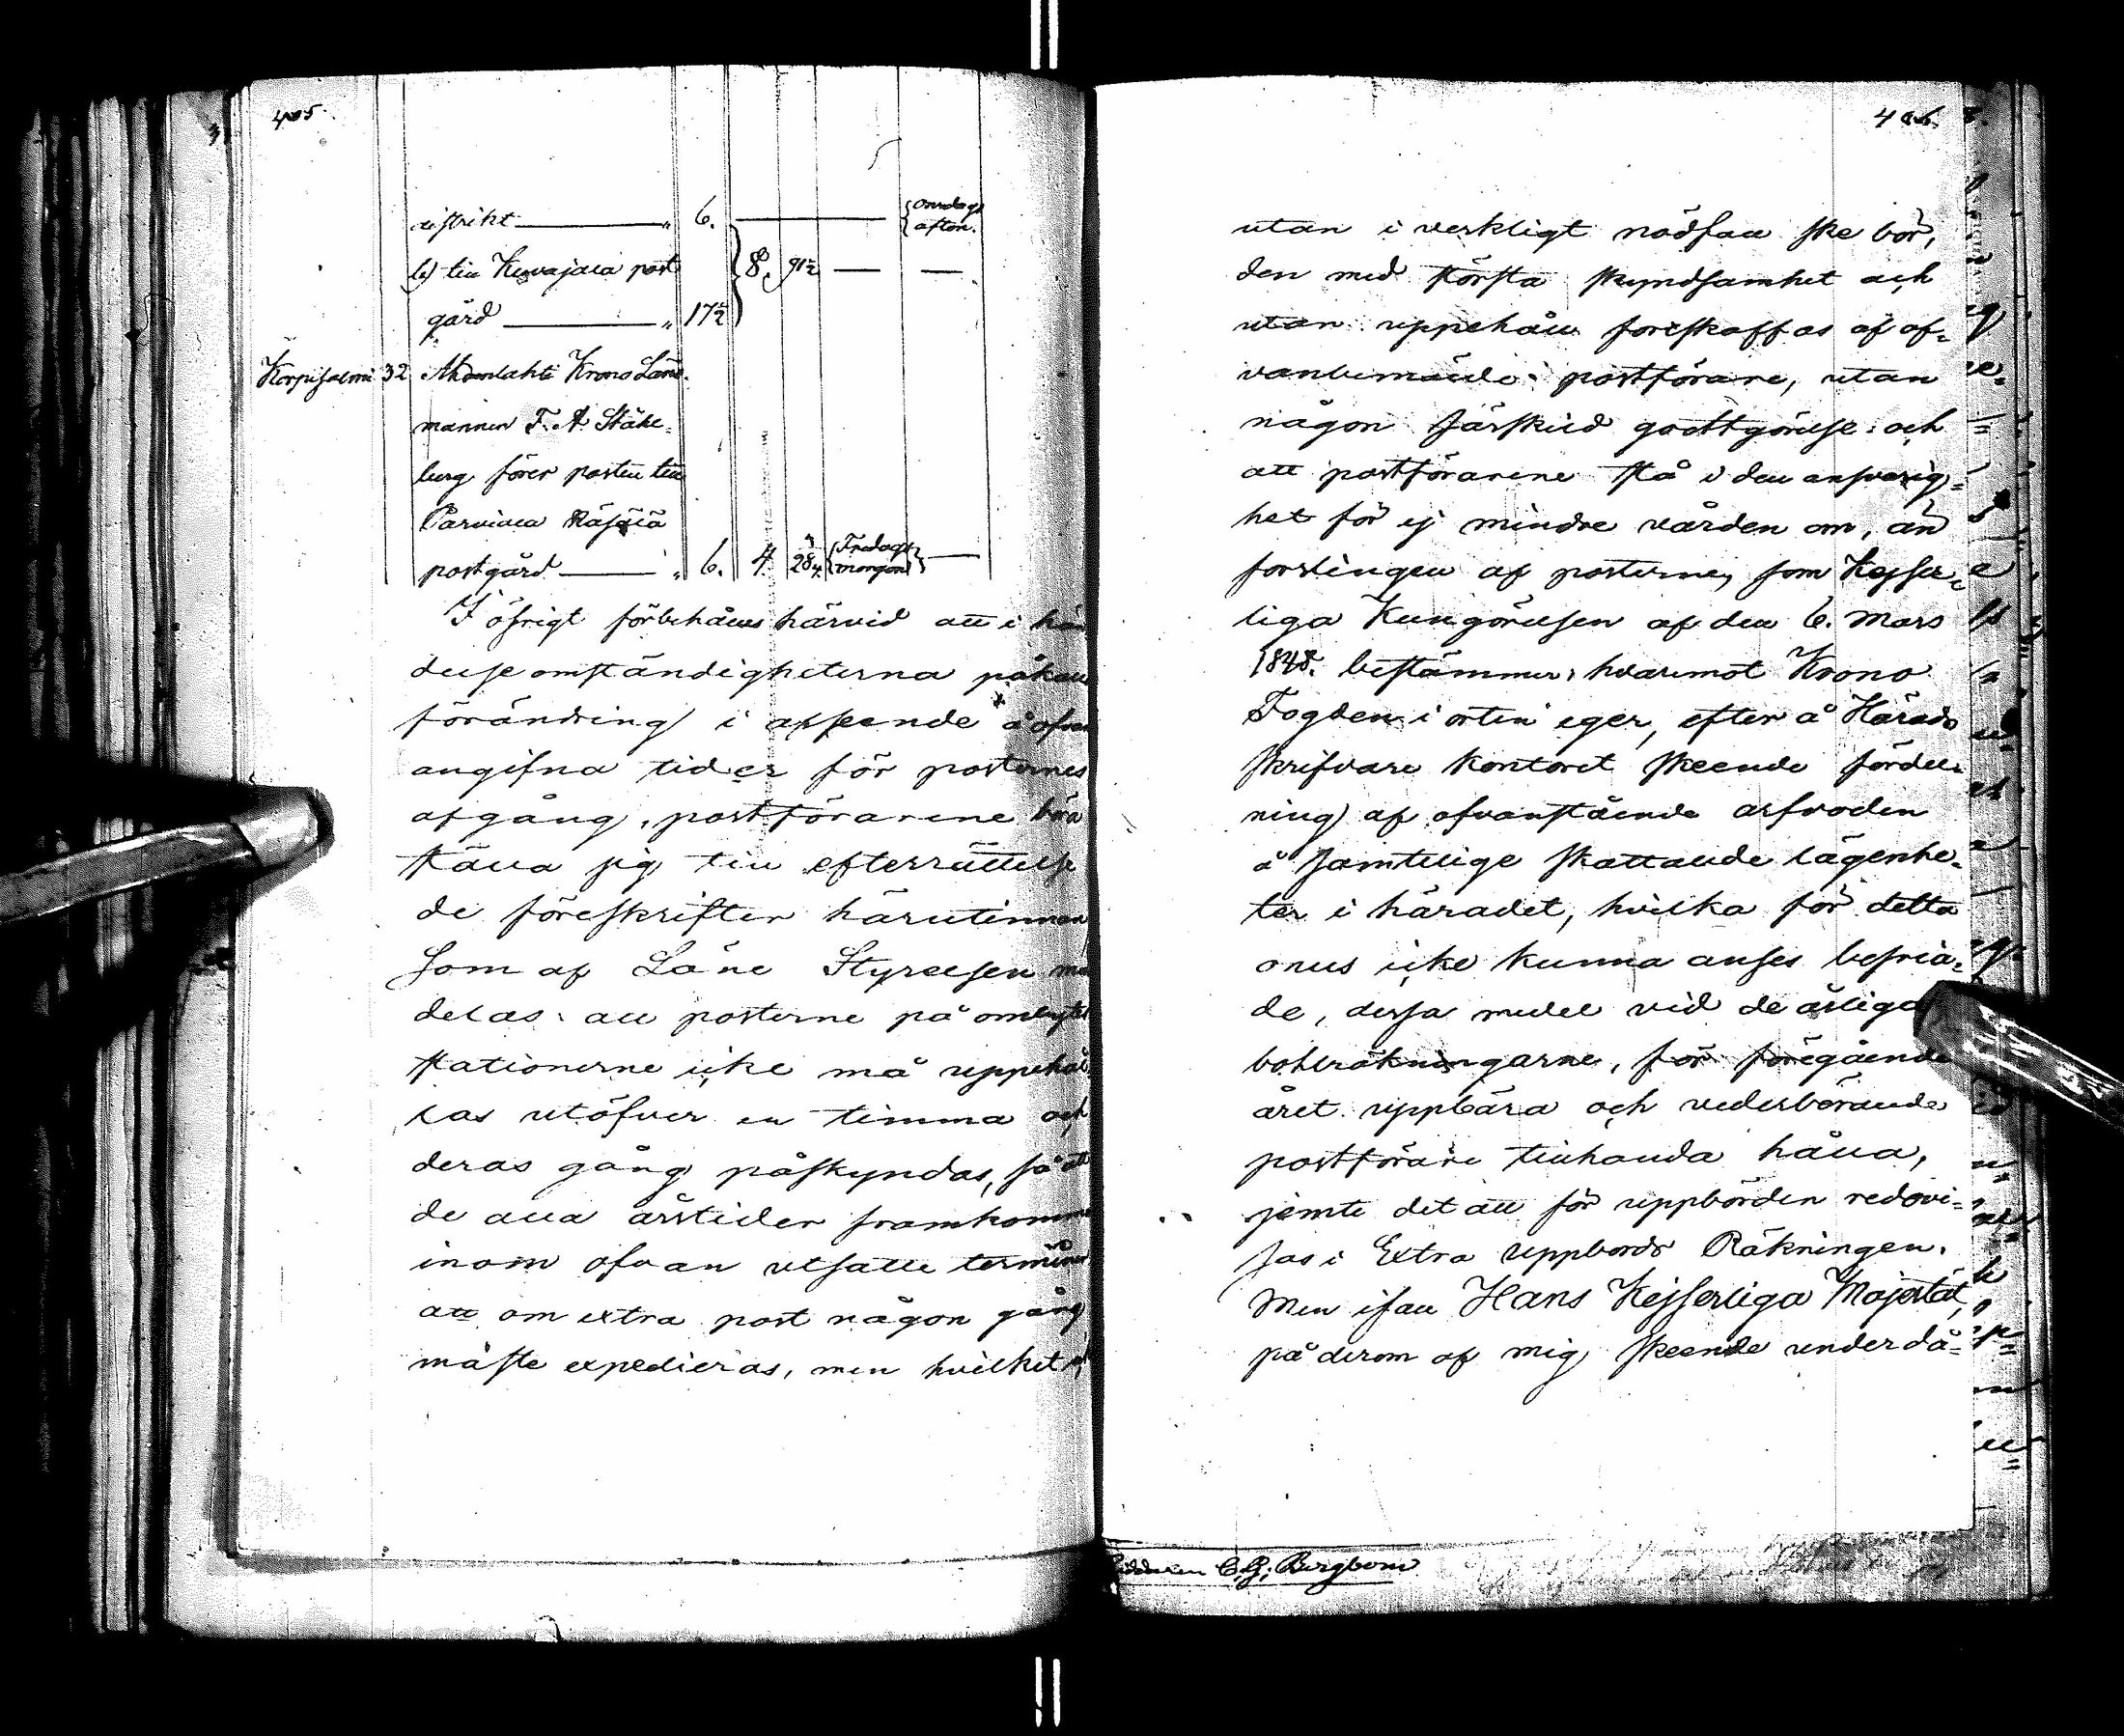 405.
distrikt — " 6. — {Onsdags afton.
b) till Kuvajala post
gård — " 17½ } 8. 91½ — —
32 Krono Läns-
mannen F. A. Ståhl-
berg förer posten till
postgård — " 6. 4. 28 4. {Fredags morgon} —
I öfrigt förbehålles härvid att i hän
delse omständigheterna påkall
förändring i afseende å ofvan
angifna tider för posternes
afgång, postförarene böra
ställa sig till efterrättelse
de föreskrifter härutinnan
som af Läne Styrelsen med
delas: att posterne på ombytes
stationerne icke må uppehål
las utöfver en timma och
deras gång påskyndas, så att
de alla årstider framkomma
inom ofvan utsatte terminer
att om extra post någon gång
måste expedieras, men hvilket ej
406.
utan i verkligt nödfall ske bör,
den med största skyndsamhet och
utan uppehåll foreskaffas af of-
vanbemälde postförare, utan
någon särskild godtgörelse: och
att postförarene stå i den ansvarig-
het för ej mindre vården om, än
forslingen af posterne, som Kejser-
liga Kungörelsen af den 6. Mars
1848. bestämmer; hvaremot Krono
Fogden i orten eger, efter å Härads
skrifvare kontoret skeende fördel-
ning af ofvanstående arfvoden
å samtelige skattande lägenhe-
ter i häradet, hvilka för detta
onus icke kunna anses befria-
de, dessa medel vid de årliga
bohlräkningarne, för föregående
året uppbära och vederbörande
postförare tillhanda hålla,
jemte det att för uppbörden redovi-
sas i Extra Uppbörds Räkningen.
Men ifall Hans Kejserliga Majestät,
på derom af mig skeende underdå-
C. G. Bergbom